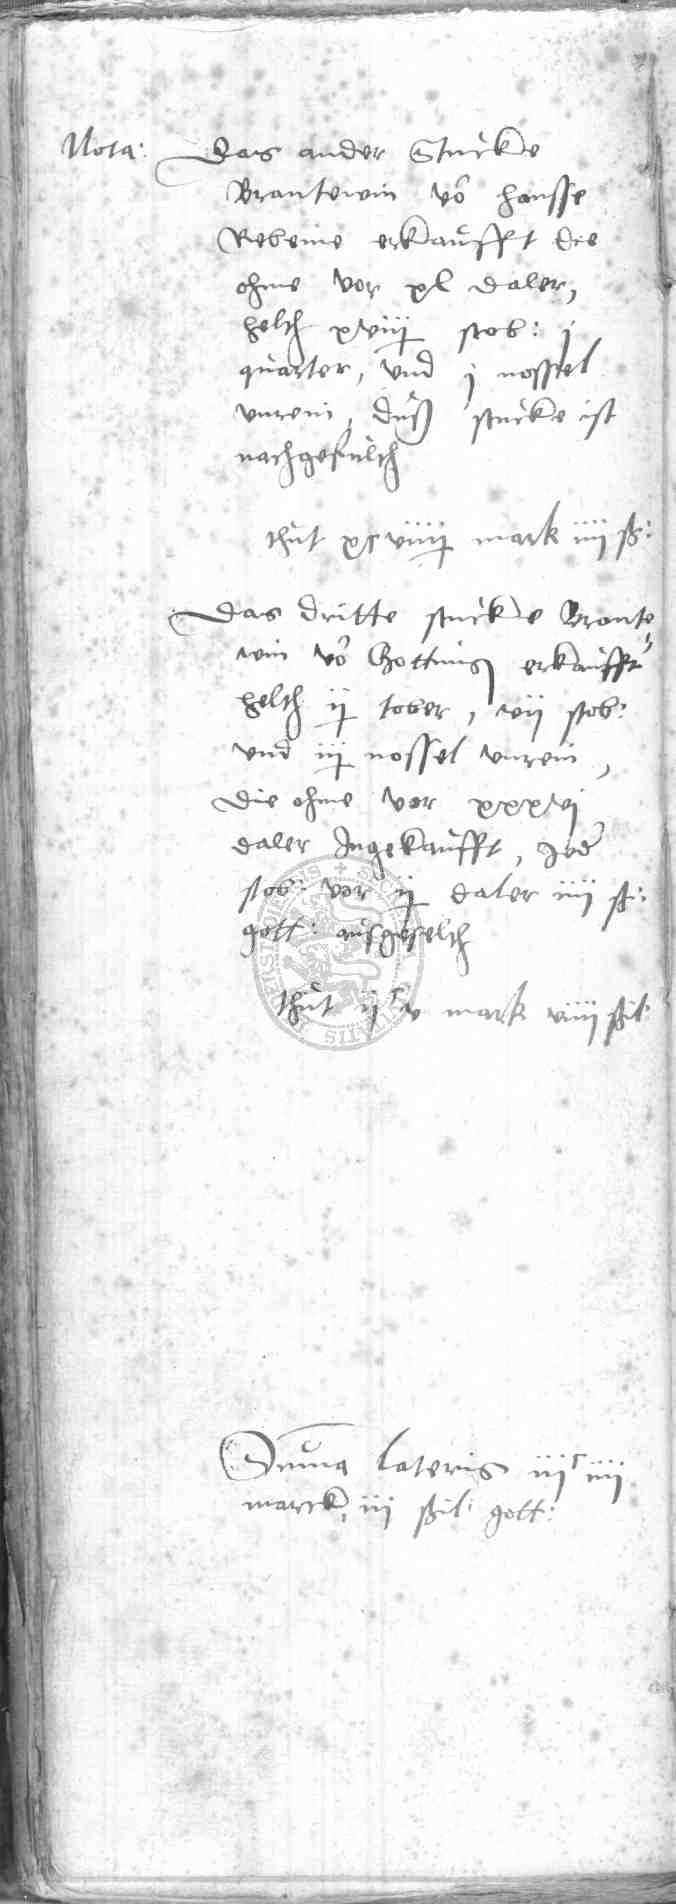 Nota: Das ander Stucke
Brantewin vō Hansse
Rebeine erkaufft die
ohme vor xl daler,
helth xviij stob: j
quarter, vnd j nossel
vnrein, duß stucke ist
nachgefulth
thut xcviiij mark iiij ß:
Das dritte stucke Brante
win vō Gotting erkaufft
helth ij tober, vij stob:
vnd iij nossel vnrein,
die ohme vor xxxvj
daler Ingekaufft, Jed
stob: vor ij daler iiij ß:
gott: ausgeselth
thut ijc v mark viiij ßil:
Suma lateris iijc iiij
marck, iij ßil: gott: